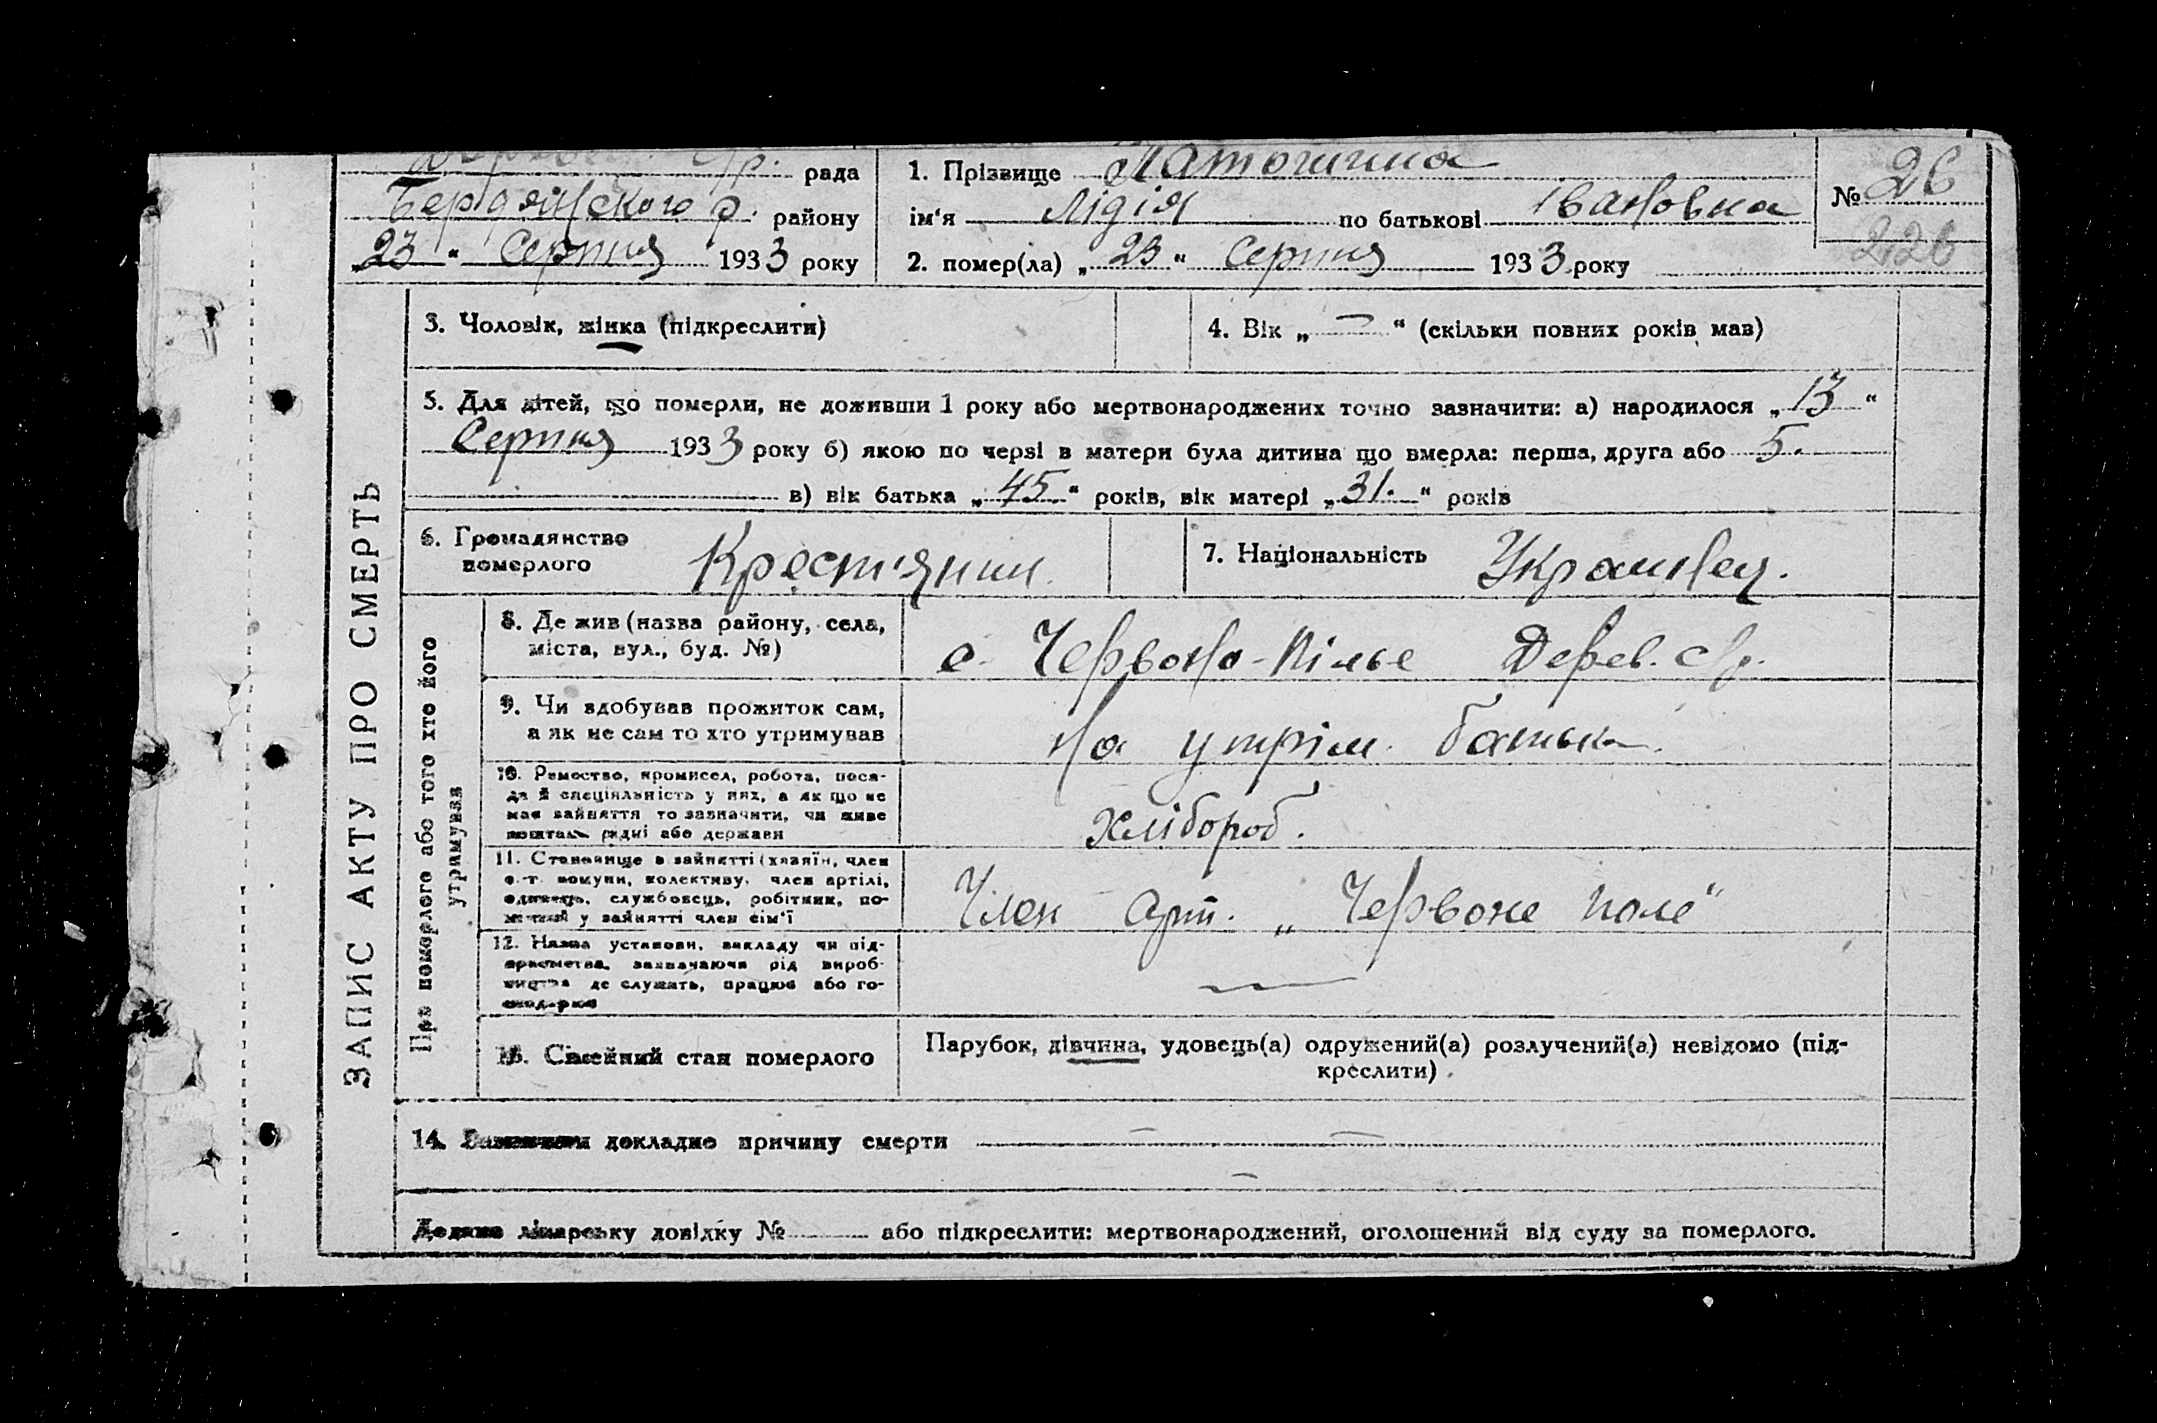 рада
Бердянського р. району
„23“ Серпня 1933 року
1. Прізвище
ім‘я Лідія по батькові Івановна
2. помер(ла) „23“ Серпня 1933 року
№ 26
226
ЗАПИС АКТУ ПРО СМЕРТЬ
3. Чоловік, жінка (підкреслити)
4. Вік „—“ (скільки повних років мав)
5. Для дітей, що померли, не доживши 1 року або мертвонароджених точно зазначити: а) народилося „13“
Серпня 1933 року б) якою по черзі в матери була дитина що вмерла: перша, друга або 5.
в) вік батька „45“ років, вік матері „31.“ років
6. Громадянство
померлого
Крест'янин.
7. Національність Украинец.
Про померлого або того хто його
утримував
8. Де жив (назва району, села,
міста, вул., буд. №)
с. Червоно-Пілье Дерев. с/р.
9. Чи здобував прожиток сам,
а як не сам то хто утримував
На утрім. батька.
10. Ремество, промисел, робота, поса-
да й спеціяльність у них, а як що не
мав зайняття то зазначити, чи живе
коштам рідні або держави
Хлібороб.
11. Становище в зайнятті (хазяїн, член
с.-г. комуни, колективу, член артілі,
одинець, службовець, робітник, по-
мічний у зайнятті член сім‘ї
Член арт. „Червоне поле“
12. Назва установи, викладу чи під-
приємства, зазначаючи рід вироб-
ництва де служить, працює або го-
сподарює
—
13. Сімейний стан померлого
Парубок, дівчина, удовець(а) одружений(а) розлучений(а) невідомо (під-
креслити)
14. докладно причину смерти — —
—
Додано лікарську довідку № або підкреслити: мертвонароджений, оголошений від суду за померлого.